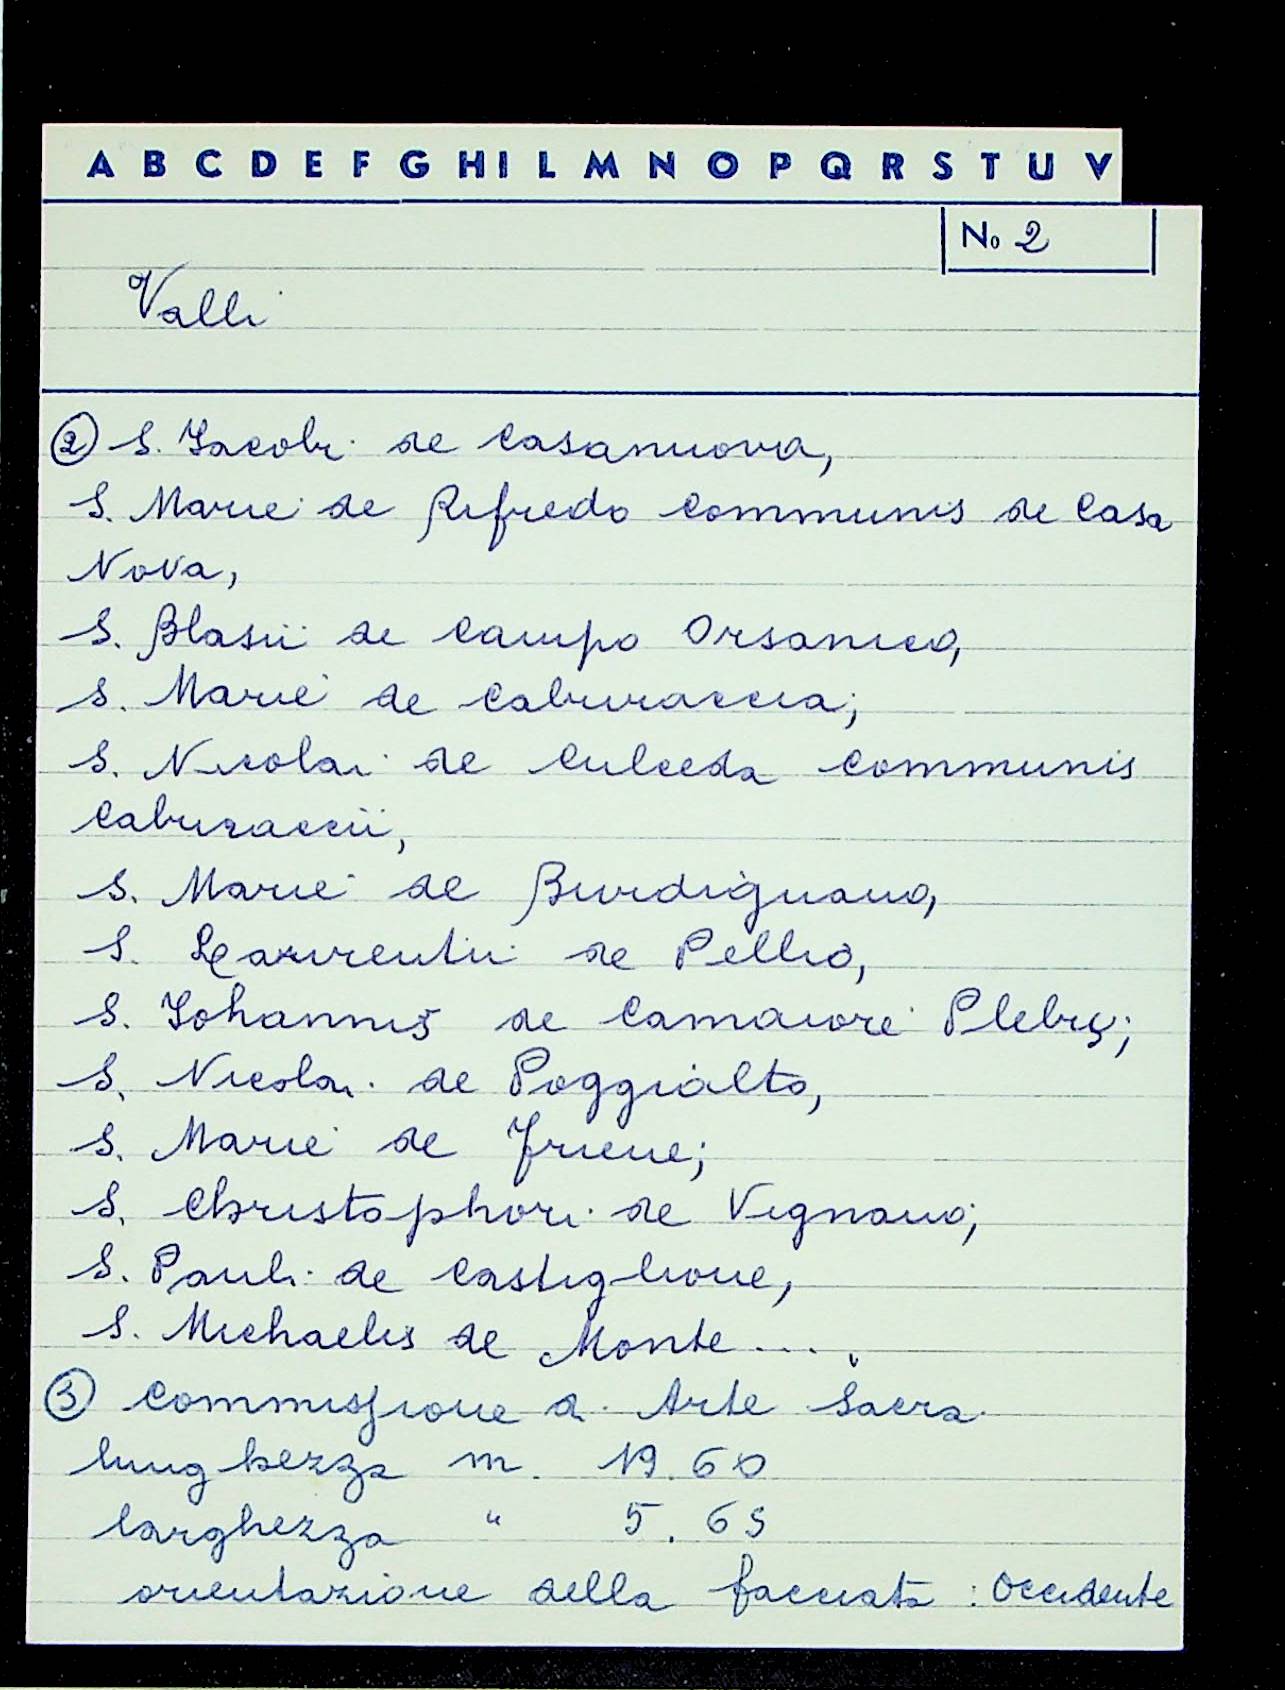 A B C D E F G H I L M N O P Q R S T U V
No 2
Valli
② S. Jacobi de Casanuova,
S. Marie de Rifredo Communis de Casa
Nova,
S. Blasii de Campo Orsanico,
S. Marie de Caburaccia;
S. Nicolai de Culceda Communis
Caburaccii,
S. Marie de Burdignano,
S. Laurentii de Pellio,
S. Johannis de Camaiore Plebis;
S. Nicolai de Poggialto,
S. Marie de Friene;
S. Christophori de Vignano;
S. Pauli de Castiglione,
S. Michaelis de Monte ....
③ Commissione di Arte Sacra
lunghezza m. 19.60
larghezza " 5.65
orientazione della facciata : Occidente